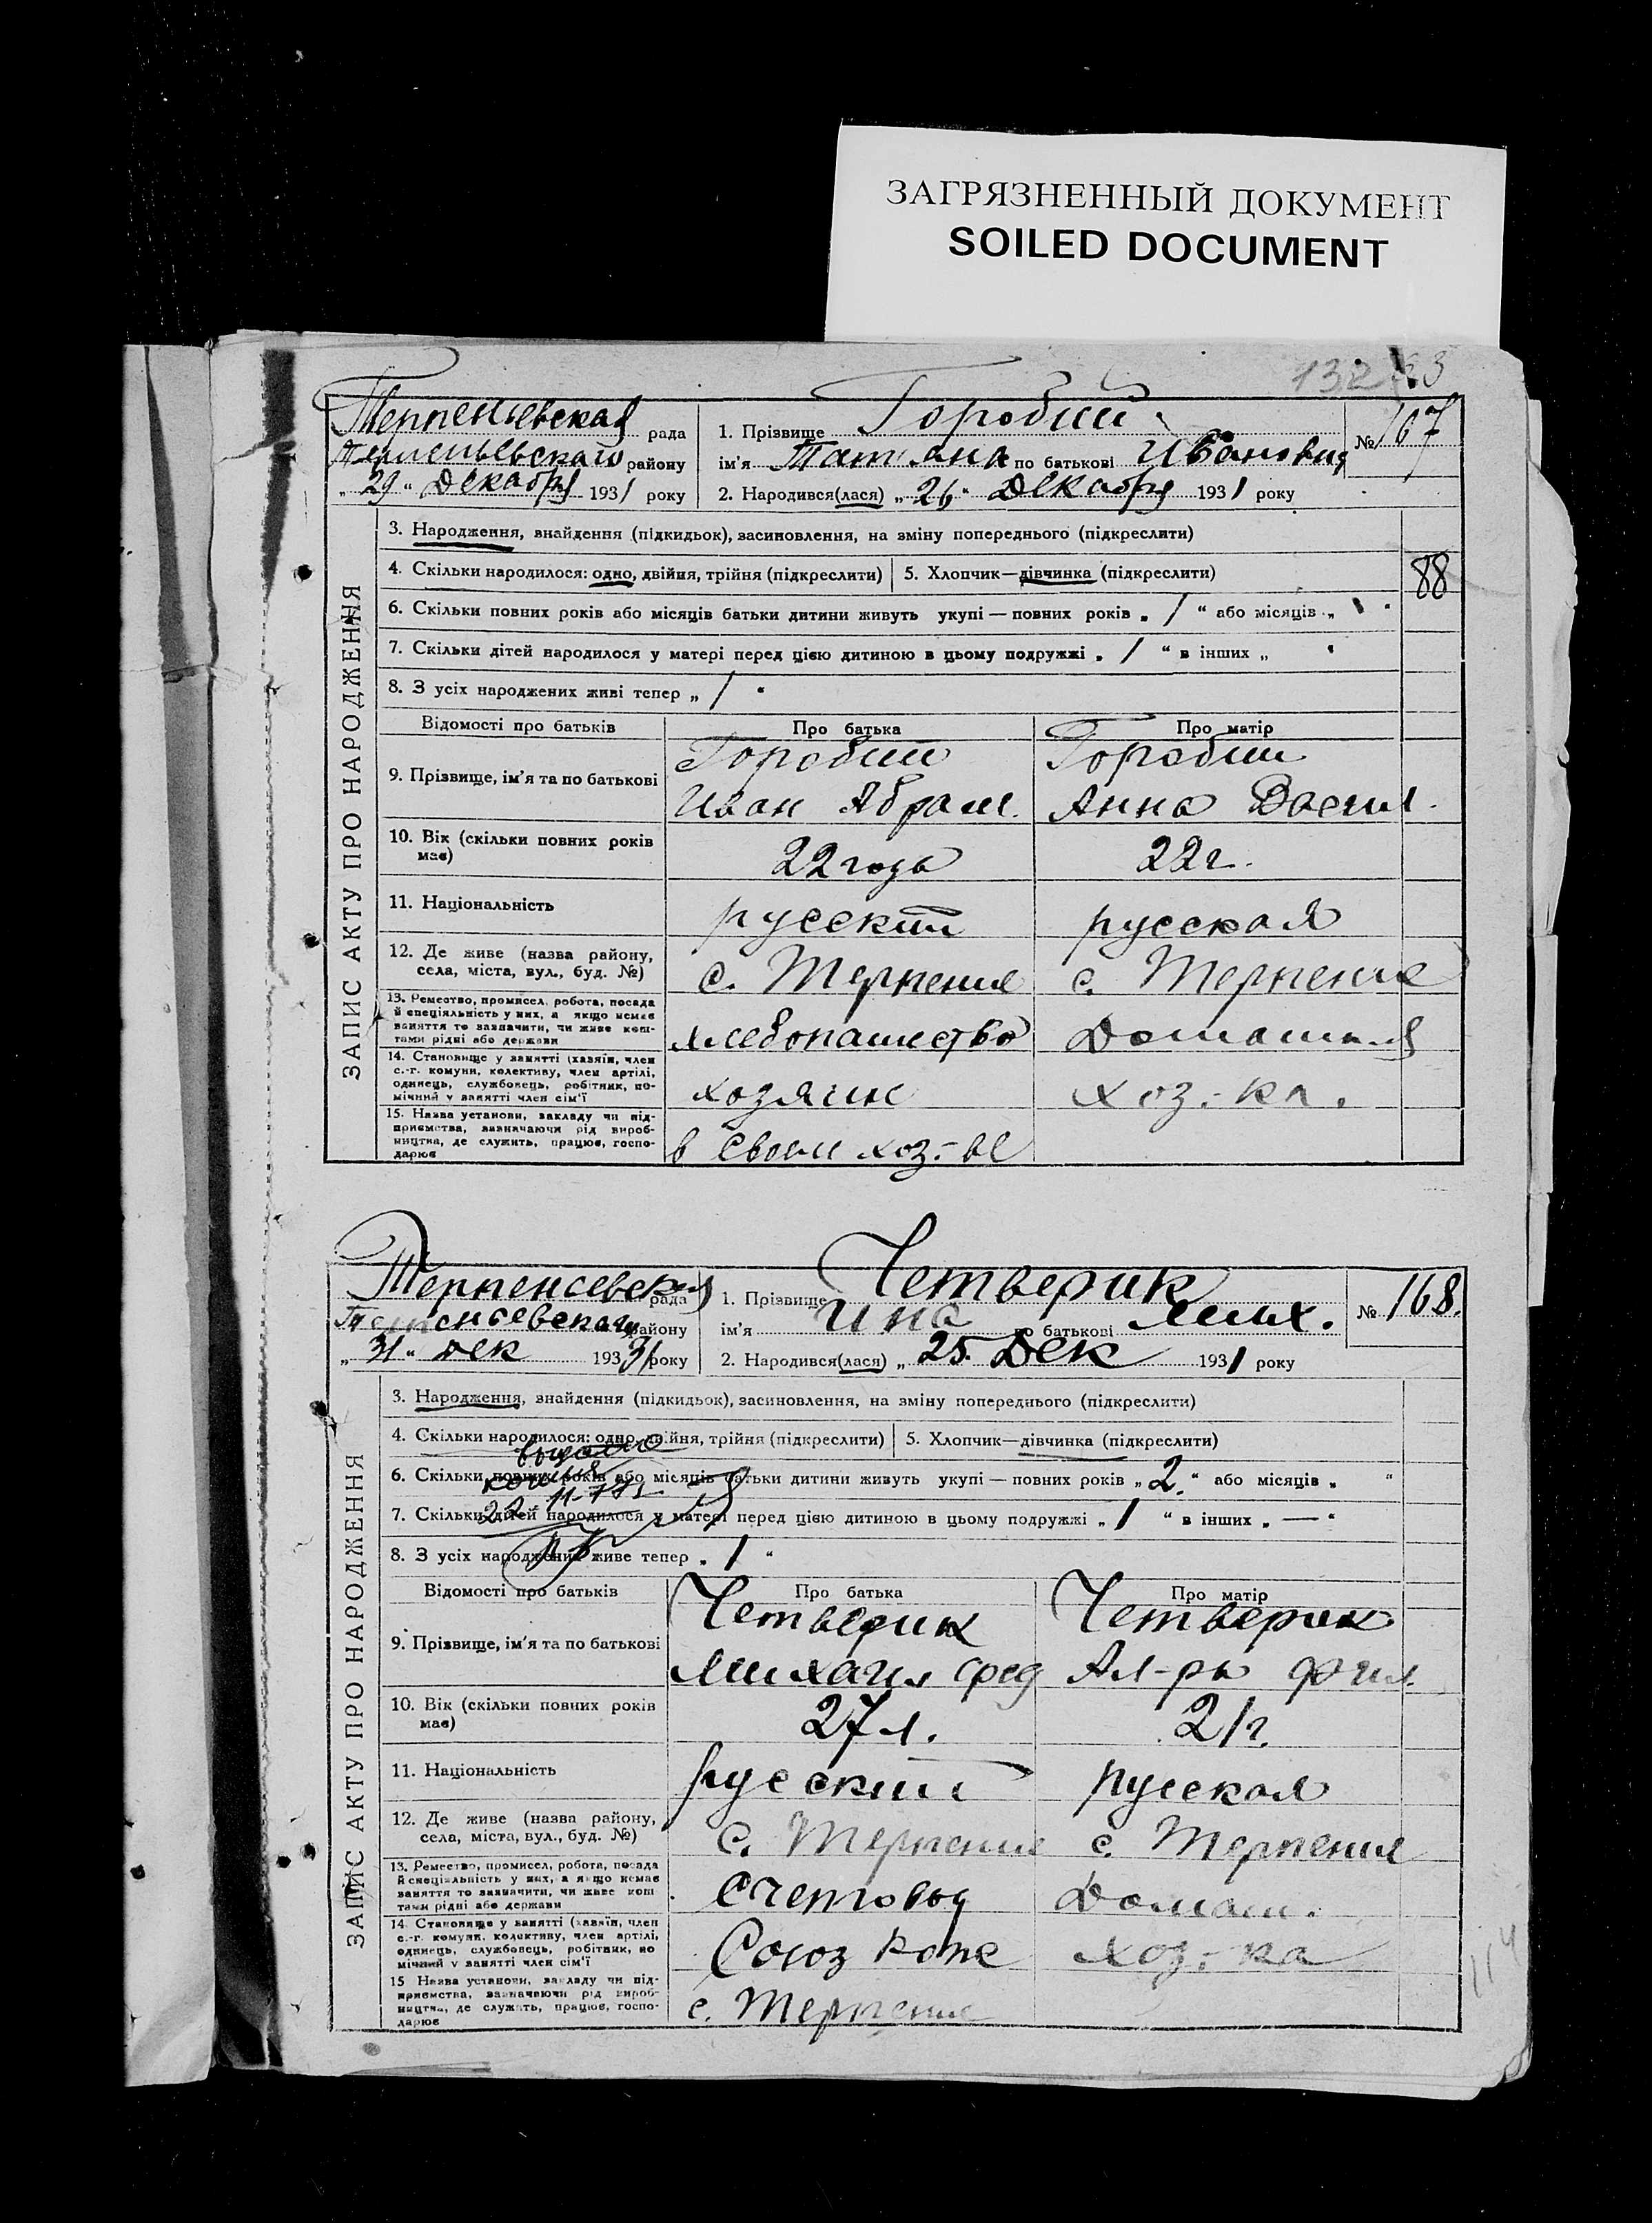 ЗАГРЯЗНЕННЫЙ ДОКУМЕНТ
SOILED DOCUMENT
132
Терпеньевская рада
Терпеньевского району
„29“ Декабря 1931 року
1. Прізвище Горобий
ім’я Татьяна по батькові Ивановна
2. Народився(лася) „26“ Декабря 1931 року
№ 167
ЗАПИС АКТУ ПРО НАРОДЖЕННЯ
3. Народження, знайдення (підкидьок), засиновлення, на зміну попереднього (підкреслити)
4. Скільки народилося: одно, двійня, трійня (підкреслити) 5. Хлопчик—дівчинка (підкреслити)
88
6. Скільки повних років або місяців батьки дитини живуть укупі — повних років „ 1 “ або місяців „
7. Скільки дітей народилося у матері перед цією дитиною в цьому подружжі „ 1 “ в інших „
8. З усіх народжених живі тепер „ 1 “
Відомості про батьків Про батька Про матір
9. Прізвище, ім’я та по батькові Горобий Горобий
Иван Абрам. Анна Васил.
10. Вік (скільки повних років має) 22 года 22 г.
11. Національність русский русская
12. Де живе (назва району, села, міста, вул., буд. №) с. Терпение с. Терпение
13. Ремество, промисел, робота, посада
й спеціяльність у них, а якщо немає
заняття то зазначити, чи живе кош-
тами рідні або держави
хлебопашество Домашняя
14. Становище у занятті (хазяїн, член
с.-г. комуни, колективу, член артілі,
одинець, службовець, робітник, по-
мічний у занятті член сім’ї
хозяин хоз-ка.
15. Назва установи, закладу чи під-
приємства, зазначаючи рід вироб-
ництва, де служить, працює, госпо-
дарює
в своем хоз-ве
Терпеньевская рада
Терпеньевского району
„31“ Дек 1931 року
1. Прізвище Четверик
ім’я Ина по батькові Мих.
2. Народився(лася) „25“ Дек 1931 року
№ 168.
ЗАПИС АКТУ ПРО НАРОДЖЕННЯ
3. Народження, знайдення (підкидьок), засиновлення, на зміну попереднього (підкреслити)
4. Скільки народилося: одно, двійня, трійня (підкреслити) 5. Хлопчик—дівчинка (підкреслити)
выдана
копия
6. Скільки повних років або місяців батьки дитини живуть укупі — повних років „ 2. “ або місяців „ “
7. Скільки дітей народилося у матері перед цією дитиною в цьому подружжі „ 1 “ в інших „ — “
8. З усіх народжених живе тепер „ 1 “
Відомості про батьків Про батька Про матір
9. Прізвище, ім’я та по батькові Четверик Четверик
Михаил Фед Ал-ра Фил.
10. Вік (скільки повних років має) 27 л. 21 г.
11. Національність русский русская
12. Де живе (назва району, села, міста, вул., буд. №) с. Терпение с. Терпение
13. Ремество, промисел, робота, посада
й спеціяльність у них, а якщо немає
заняття то зазначити, чи живе кош
тами рідні або держави
Счетовод Домаш.
14. Становище у занятті (хазяїн, член
с.-г. комуни, колективу, член артілі,
одинець, службовець, робітник, по
мічний у занятті член сім’ї
Союз хоз-ка
15 Назва установи, закладу чи під-
приємства, зазначаючи рід вироб-
ництва, де служить, працює, госпо-
дарює
с. Терпение
114